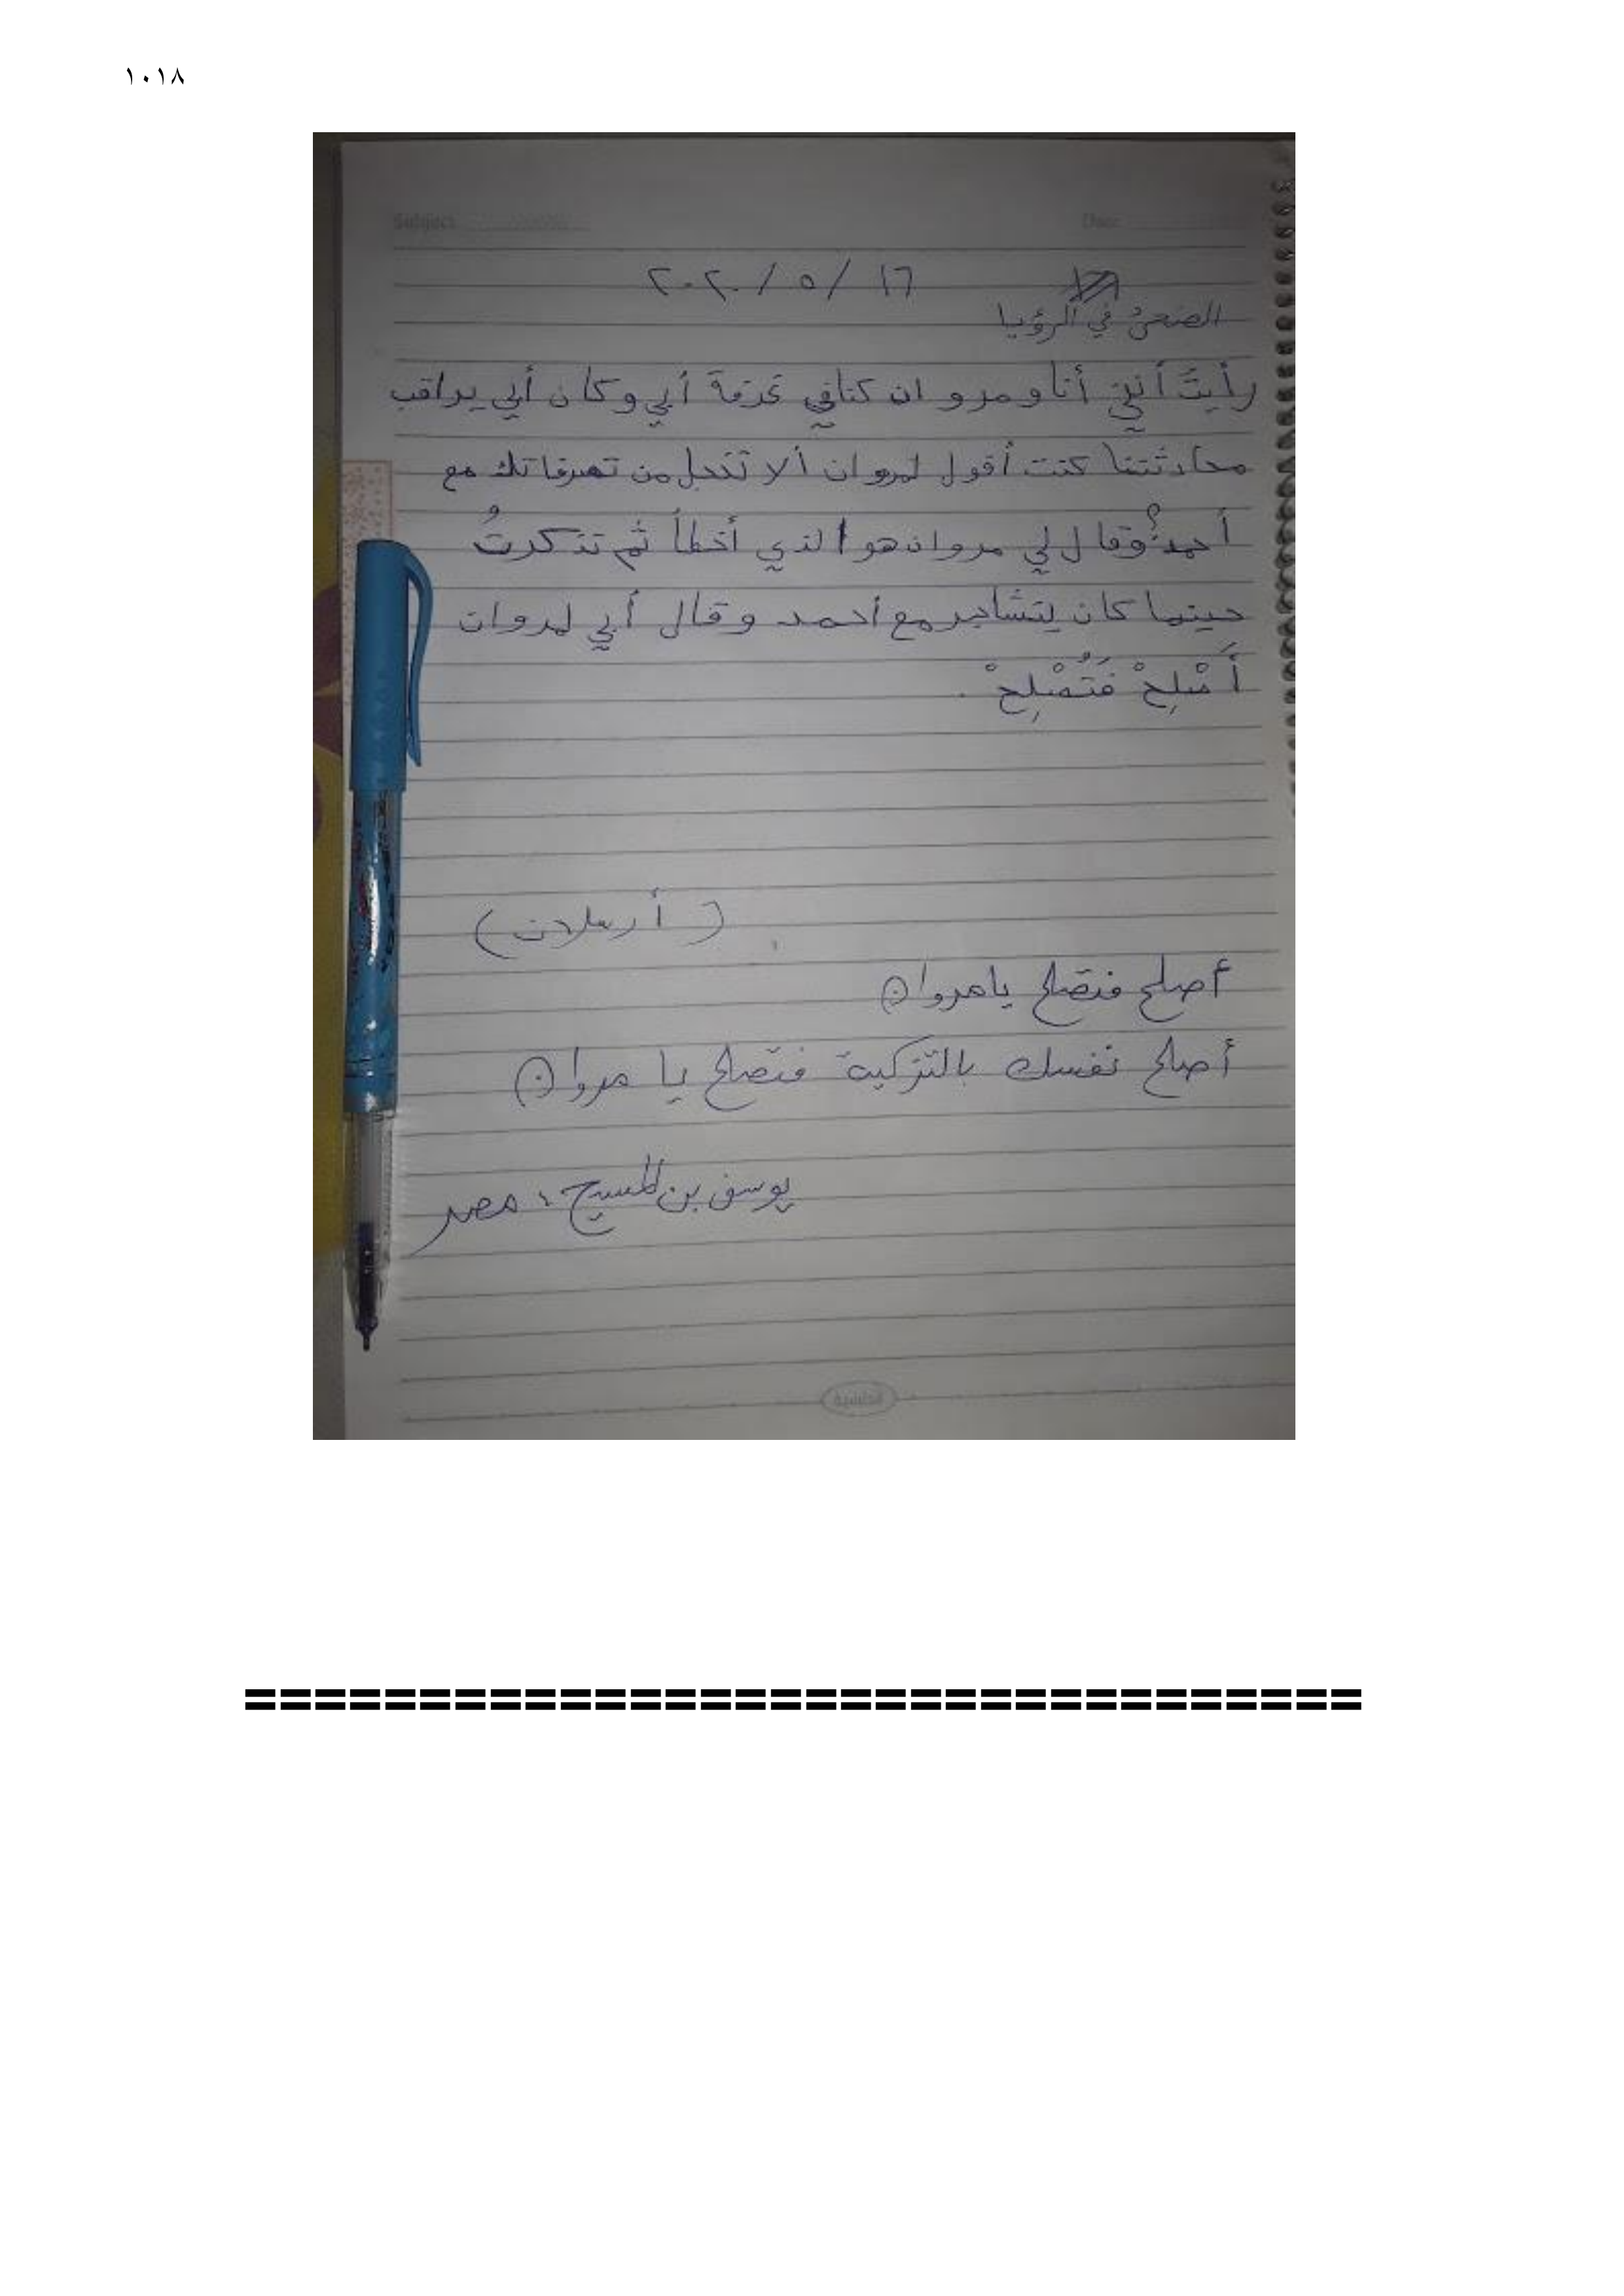 ١٠١٨
Subject
١٦ / ٥ / ٢٠٢٠
في الرؤيا
رأيتُ أنني أنا ومروان كنا في غرفة أبي وكان أبي يراقب
محادثتنا كنت أقول لمروان ألا تخجل من تصرفاتك مع
أحمد؟ وقال لي مروان هو الذي أخطأ ثم تذكرتُ
حينما كان يتشاجر مع أحمد وقال أبي لمروان
أَصْلِحْ فَتُصْلِحْ .
( أرسلان )
أصلح فتصلح يا مروان
أصلح نفسك بالتزكية فتصلح يا مروان
يوسف بن المسيح ، مصر
================================